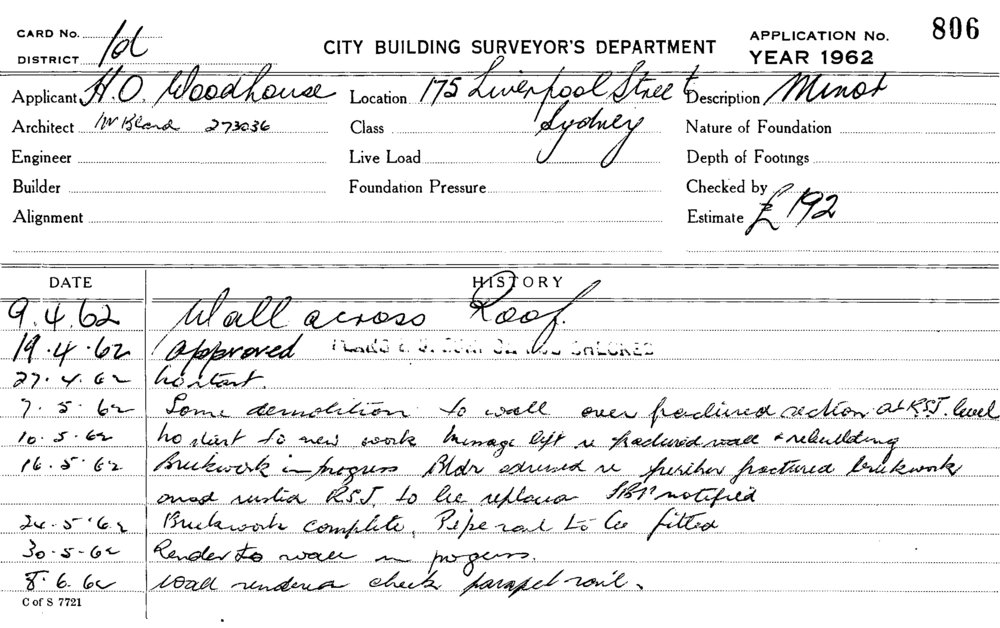 CARD No.
DISTRICT 1d
CITY BUILDING SURVEYOR'S DEPARTMENT
APPLICATION No. 806
YEAR 1962
Applicant H.O. Woodhouse Location 175 Liverpool Street Description Minor
Architect Mr 273036 Class Sydney Nature of Foundation
Engineer Live Load Depth of Footings
Builder Foundation Pressure Checked by
Alignment Estimate £192
DATE HISTORY
9.4.62 Wall across Roof.
19.4.62 Approved
27.4.62 No start.
7.5.62 Some demolition to wall over fractured section at RSJ. level
10.5.62 No start to new work Message left re fractured wall & rebuilding
16.5.62 Brickwork in progress Bldr advised re further fractured brickwork
and rusted RSJ. to be replaced notified
24.5.62 Brickwork complete. Pipe rail to be fitted
30.5.62 Render to wall in progress.
8.6.62 Wall rendered check parapet rail.
C of S 7721